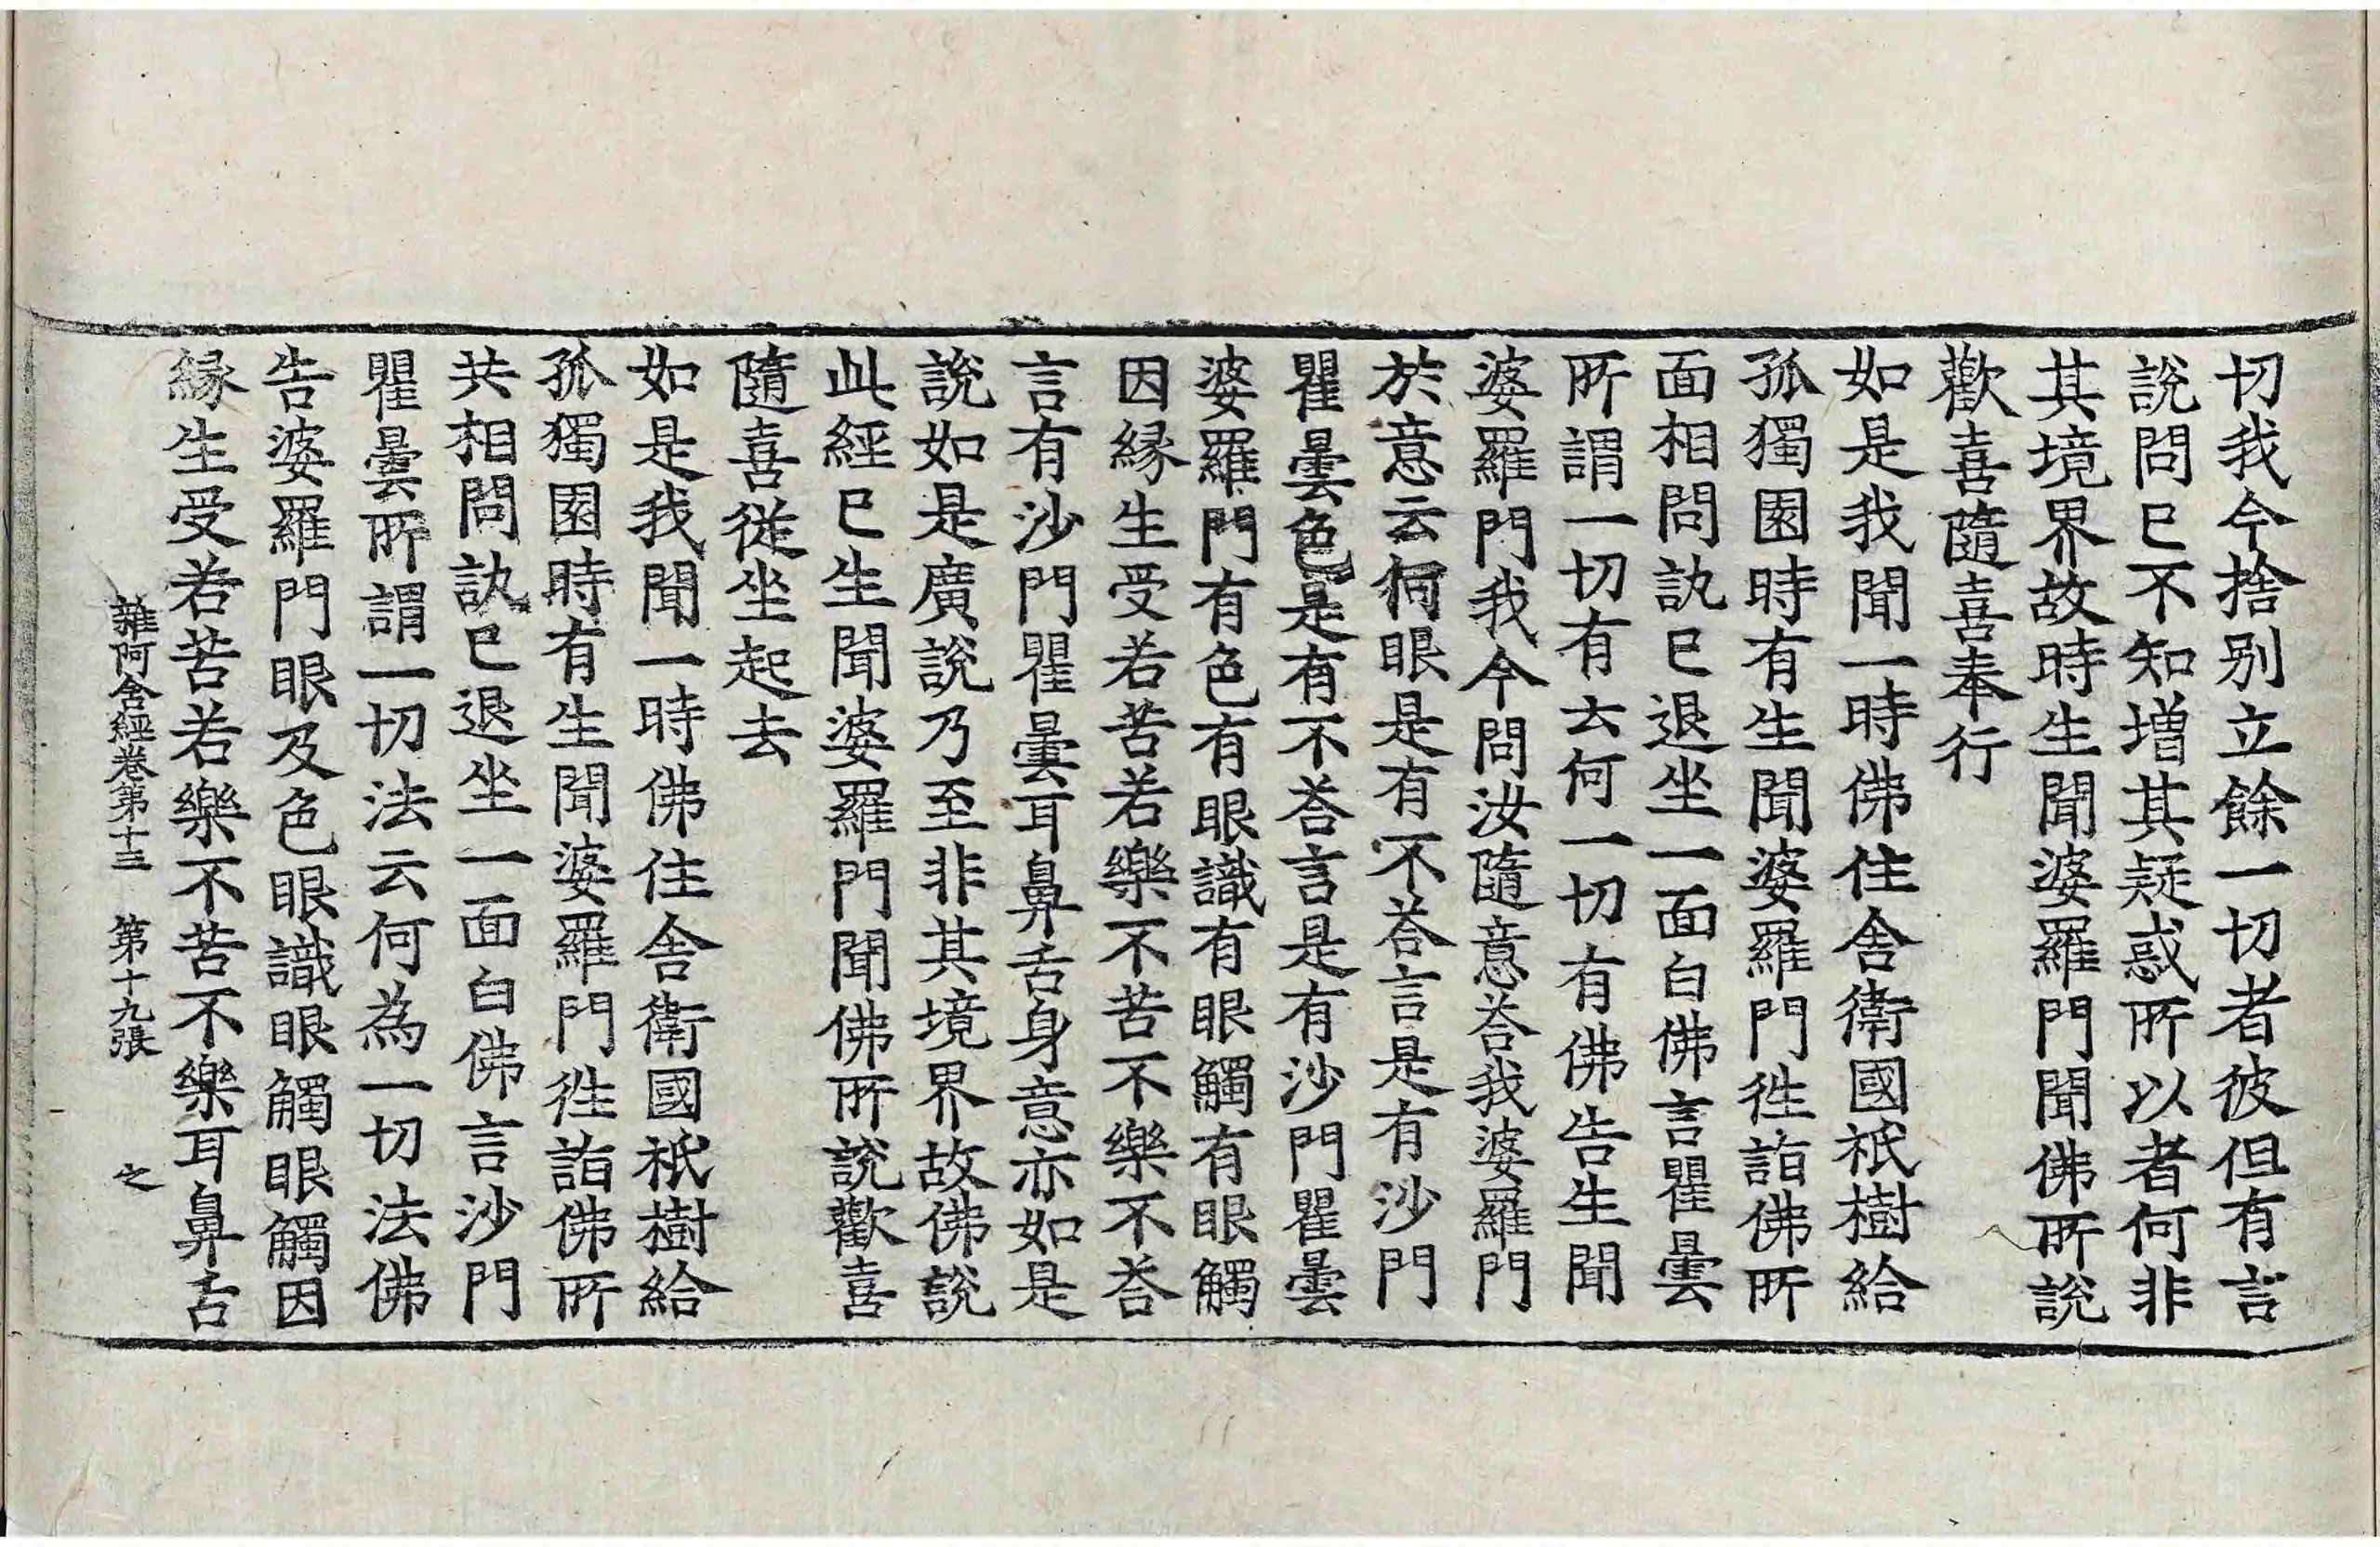 切我今捨別立餘一切者彼但有言
說問已不知增其疑惑所以者何非
其境界故時生聞婆羅門聞佛所說
歡喜隨喜奉行
如是我聞一時佛住舍衛國祇樹給
孤獨園時有生聞婆羅門徃詣佛所
面相問訊已退坐一面白佛言瞿曇
所謂一切有云何一切有佛告生聞
婆羅門我今問汝隨意荅我婆羅門
於意云何眼是有不荅言是有沙門
瞿曇色是有不荅言是有沙門瞿曇
婆羅門有色有眼識有眼觸有眼觸
因緣生受若苦若樂不苦不樂不荅
言有沙門瞿曇耳鼻舌身意亦如是
說如是廣說乃至非其境界故佛說
此經已生聞婆羅門聞佛所說歡喜
隨喜從坐起去
如是我聞一時佛住舍衛國祇樹給
孤獨園時有生聞婆羅門徃詣佛所
共相問訊已退坐一面白佛言沙門
瞿曇所謂一切法云何為一切法佛
告婆羅門眼及色眼識眼觸眼觸因
緣生受若苦若樂不苦不樂耳鼻舌
雜阿含經卷第十三 第十九張 之